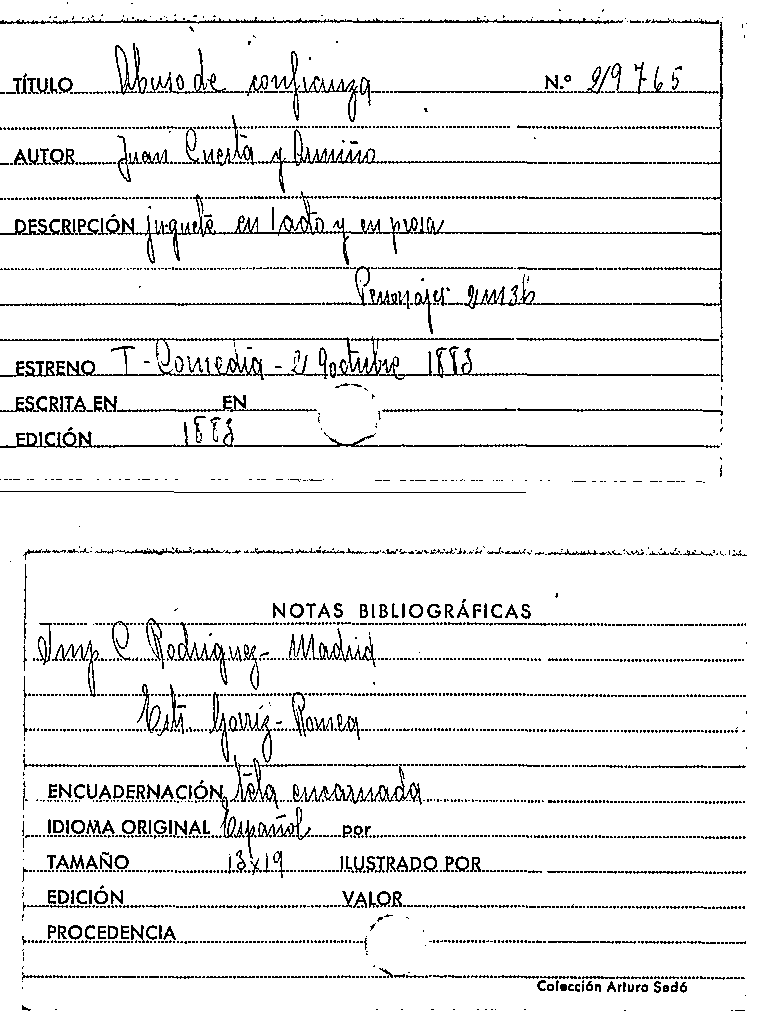 TÍTULO Abuso de confianza N.º 29765
AUTOR Juan Cuesta y Armiño
DESCRIPCIÓN juguete en 1 acto y en prosa
Personajes 2m3h
ESTRENO T-Comedia - 29 octubre 1883
ESCRITA EN EN
EDICIÓN 1883
NOTAS BIBLIOGRÁFICAS
Imp C Rodriguez - Madrid
Estr. Gorriz - Romea
ENCUADERNACIÓN tela encarnada
IDIOMA ORIGINAL Español por
TAMAÑO 13x19 ILUSTRADO POR
EDICIÓN VALOR
PROCEDENCIA
Colección Arturo Sedó